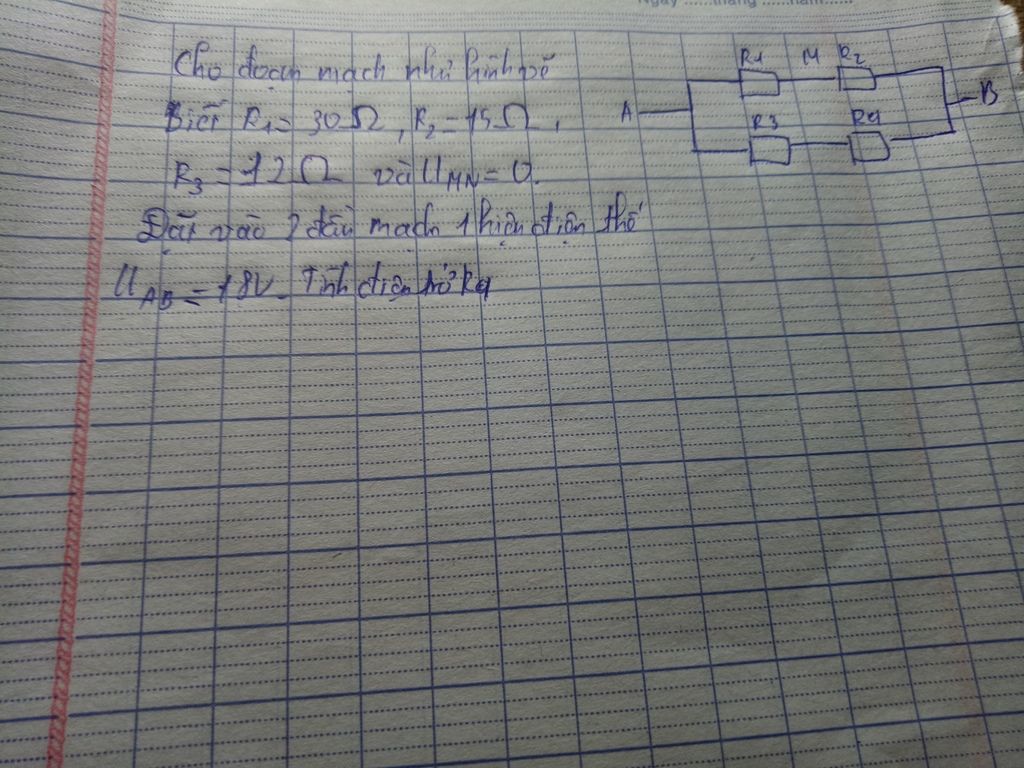 Ngày ......tháng ......năm......
Cho đoạn mạch như hình vẽ
Biết R1= 30Ω, R2=15Ω,
R3=12Ω và UMN=0.
Đặt vào 2 đầu mạch 1 hiện điện thế
UAB=18V. Tính điện trở R4
R1 M R2
A B
R3 R4